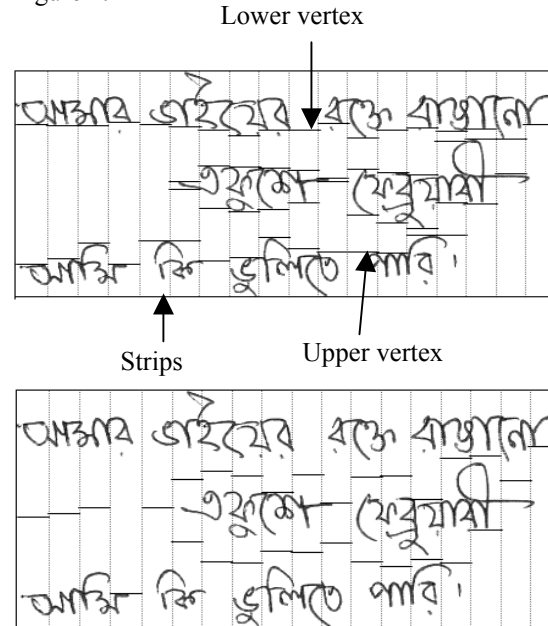 Lower vertex
আমার ভাইয়ের রক্তে রাঙানো
একুশে ফেব্রুয়ারী
আমি কি ভুলিতে পারি।
Strips
Upper vertex
আমার ভাইয়ের রক্তে রাঙানো
একুশে ফেব্রুয়ারী
আমি কি ভুলিতে পারি।